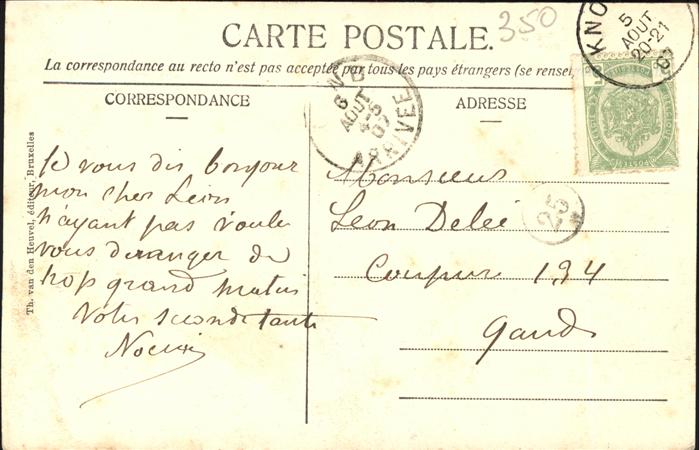 350
CARTE POSTALE.
KNO
5
AOUT
20-21
07
La correspondance au recto n'est pas acceptée par tous les pays étrangers (se rensei
CORRESPONDANCE
ADRESSE
6
AOUT
07
ARRIVEE
Je vous dis bonjour
mon cher Leon
n'ayant pas voulu
vous deranger de
trop grand matin
Votre seconde tante
Monsieur
Leon Delée
Coupure 194
Gand
25
Th. van den Heuvel, éditeur, Bruxelles